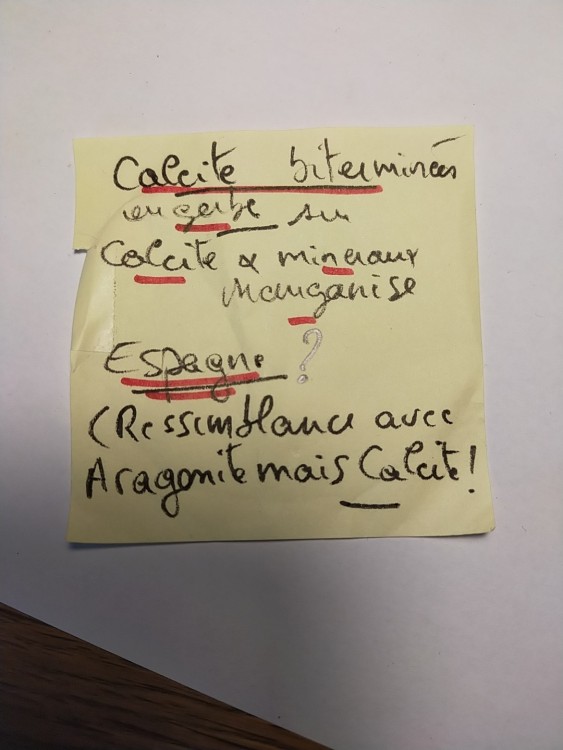 Calcite biterminées
en gerbe sur
Calcite & mineraux
Manganise
Espagne ?
(Ressemblance avec
Aragonite mais Calcite!